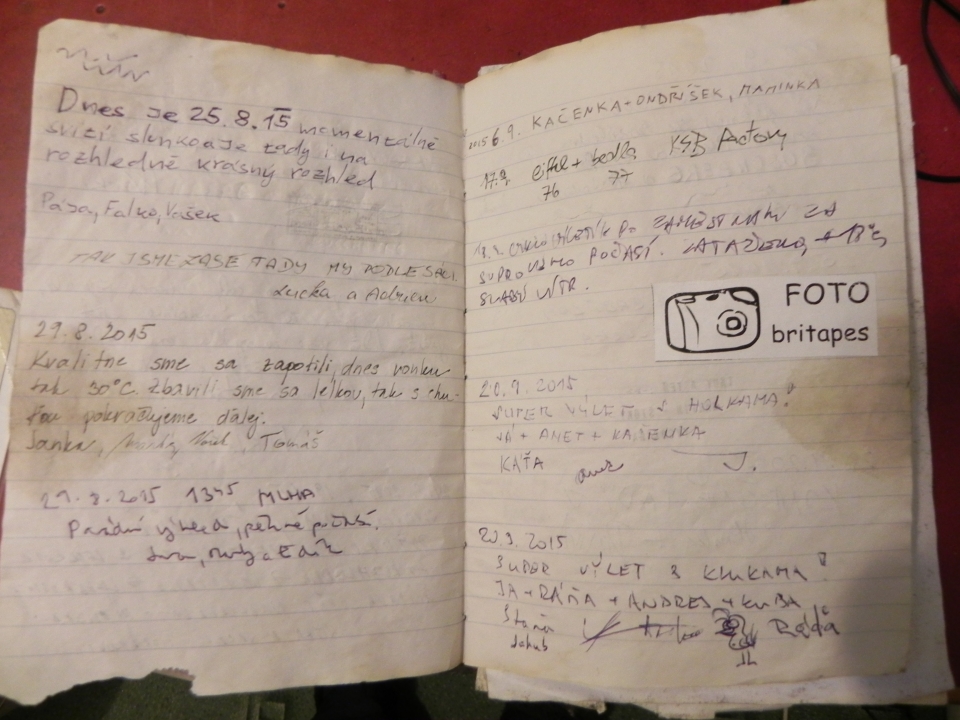 Dnes je 25.8.15 momentálně
svítí slunko a je tady i na
rozhledně krásný rozhled
Pája, Falko, Vašek
TAK JSME ZASE TADY MY PODLESÁCI.
Lucka a Adrien
29.8.2015
Kvalitne sme sa zapotili, dnes vonku
tak 30°C. Zbavili sme sa létkov, tak s chu-
ťou pokračujeme ďalej.
Janka, Tomáš
29.8.2015 1345 MLHA
počasí.
2015 6.9. KAČENKA + ONDŘÍŠEK, MAMINKA
17.9. eiffel +
76 77
PO ZAMĚSTNÁNÍ ZA
POČASÍ. ZATAŽENO, + 18°C,
SLABÝ VÍTR.
FOTO
britapes
20.9.2015
SUPER VÝLET S HOLKAMA!
JÁ + ANET + KAČENKA
KÁŤA J.
20.9.2015
SUPER VÝLET S KLUKAMA!
JA + RÁĎA + ANDRES + KUBA
Jakub Ráďa